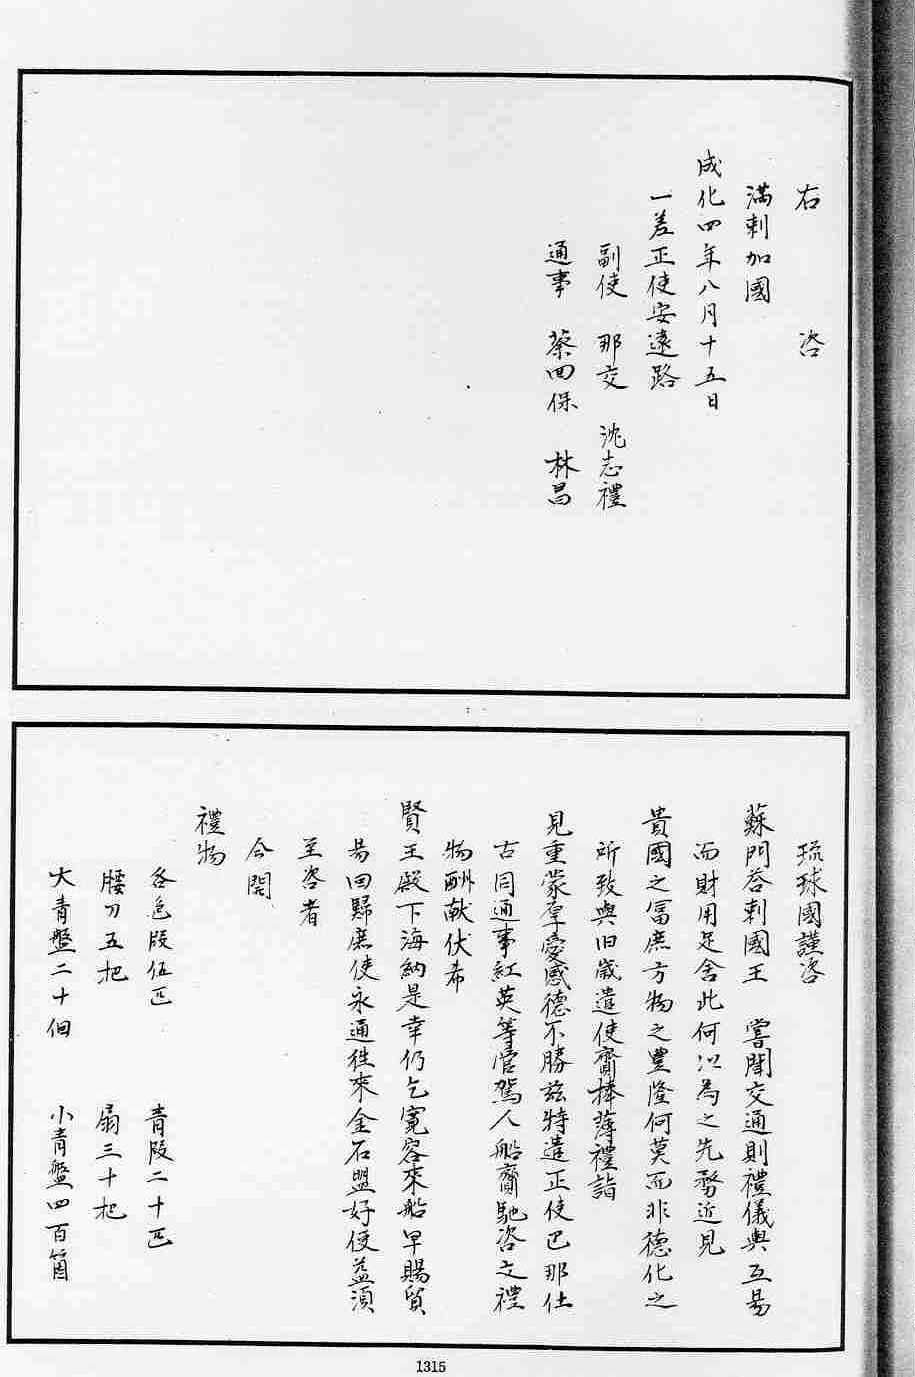 右　　咨
滿剌加國
成化四年八月十五日
一差正使安遠路
副使　那交　沈志禮
通事　蔡回保　林昌
琉球國謹咨
蘇門荅剌國王　嘗聞交通則禮儀興互易
而財用足舍此何以為之先務近見
貴國之冨庶方物之豊隆何莫而非德化之
所致與旧歲遣使齎捧薄禮詣
見重蒙厚愛感德不勝茲特遣正使巴那仕
古同通事紅英等管駕人船齎馳咨文禮
物酬献伏希
賢王殿下海納是幸仍乞寛容來船早賜貿
易回歸庶使永通徃來金石盟好便益須
至咨者
今開
禮物
各色段伍匹　青段二十匹
腰刀五把　扇三十把
大青盤二十個　小青盤四百箇
1315